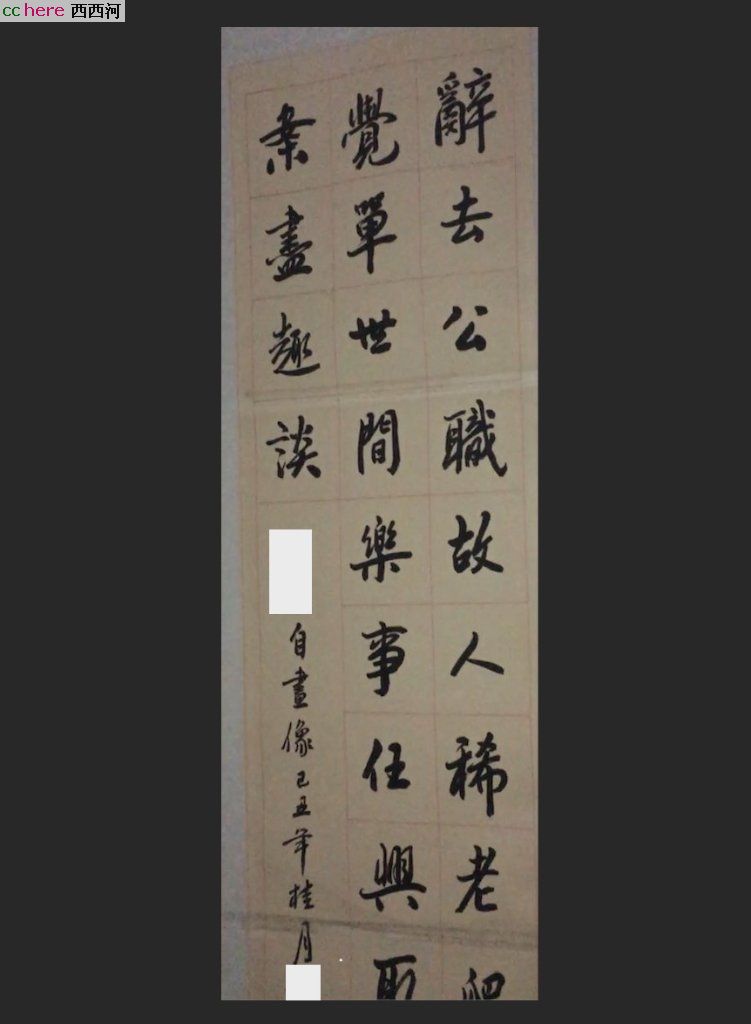 cchere 西西河
辭去公職故人稀老
覺單世間樂事任興
案盡趣談
自畫像己丑年桂月